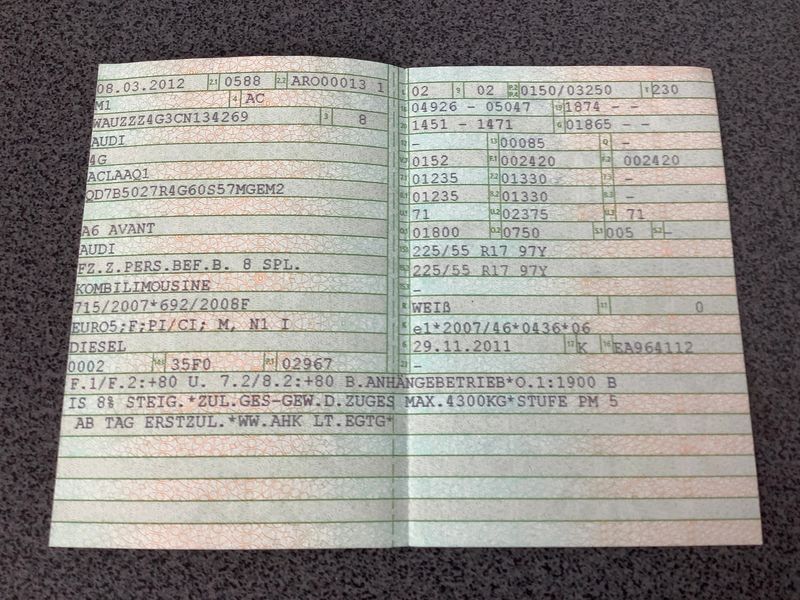 08.03.2012 2.1 0588 2.2 ARO00013 1
M1 4 AC
WAUZZZ4G3CN134269 3 8
AUDI
4G
ACLAAQ1
QD7B5027R4G60S57MGEM2
A6 AVANT
AUDI
FZ.Z.PERS.BEF.B. 8 SPL.
KOMBILIMOUSINE
715/2007*692/2008F
EURO5;F;PI/CI; M, N1 I
DIESEL
0002 14.1 35F0 P.1 02967
L 02 9 02 P.2 P.4 0150/03250 T 230
18 04926 - 05047 19 1874 - -
20 1451 - 1471 G 01865 - -
12 - 13 00085 Q -
V.7 0152 F.1 002420 F.2 002420
7.1 01235 7.2 01330 7.3 -
8.1 01235 8.2 01330 8.3 -
U.1 71 U.2 02375 U.3 71
O.1 01800 O.2 0750 S.1 005 S.2 -
15.1 225/55 R17 97Y
15.2 225/55 R17 97Y
15.3 -
R WEIß 11 0
K e1*2007/46*0436*06
6 29.11.2011 17 K 16 EA964112
21 -
F.1/F.2:+80 U. 7.2/8.2:+80 B.ANHÄNGEBETRIEB*O.1:1900 B
IS 8% STEIG.*ZUL.GES-GEW.D.ZUGES MAX.4300KG*STUFE PM 5
AB TAG ERSTZUL.*WW.AHK LT.EGTG*